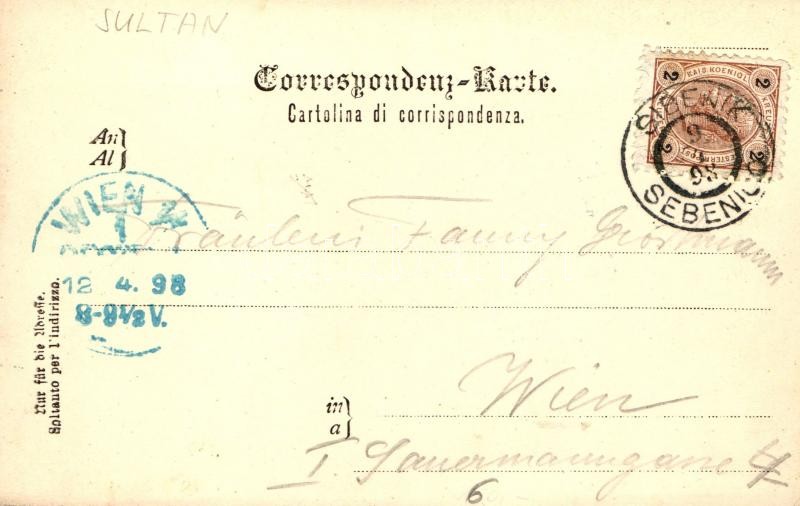 SULTAN
Correspondenz-Karte.
Cartolina di corrispondenza.
KAIS. KOENIGL.
2 2
2 2
ŠIBENIK
9
4
98
SEBENICO
An
Al
WIEN
1
12. 4. 98
8-9½ V.
Fräulein Fanny Grossmann
Nur für die Adresse.
Soltanto per l'indirizzo.
in
a
Wien
I.
6